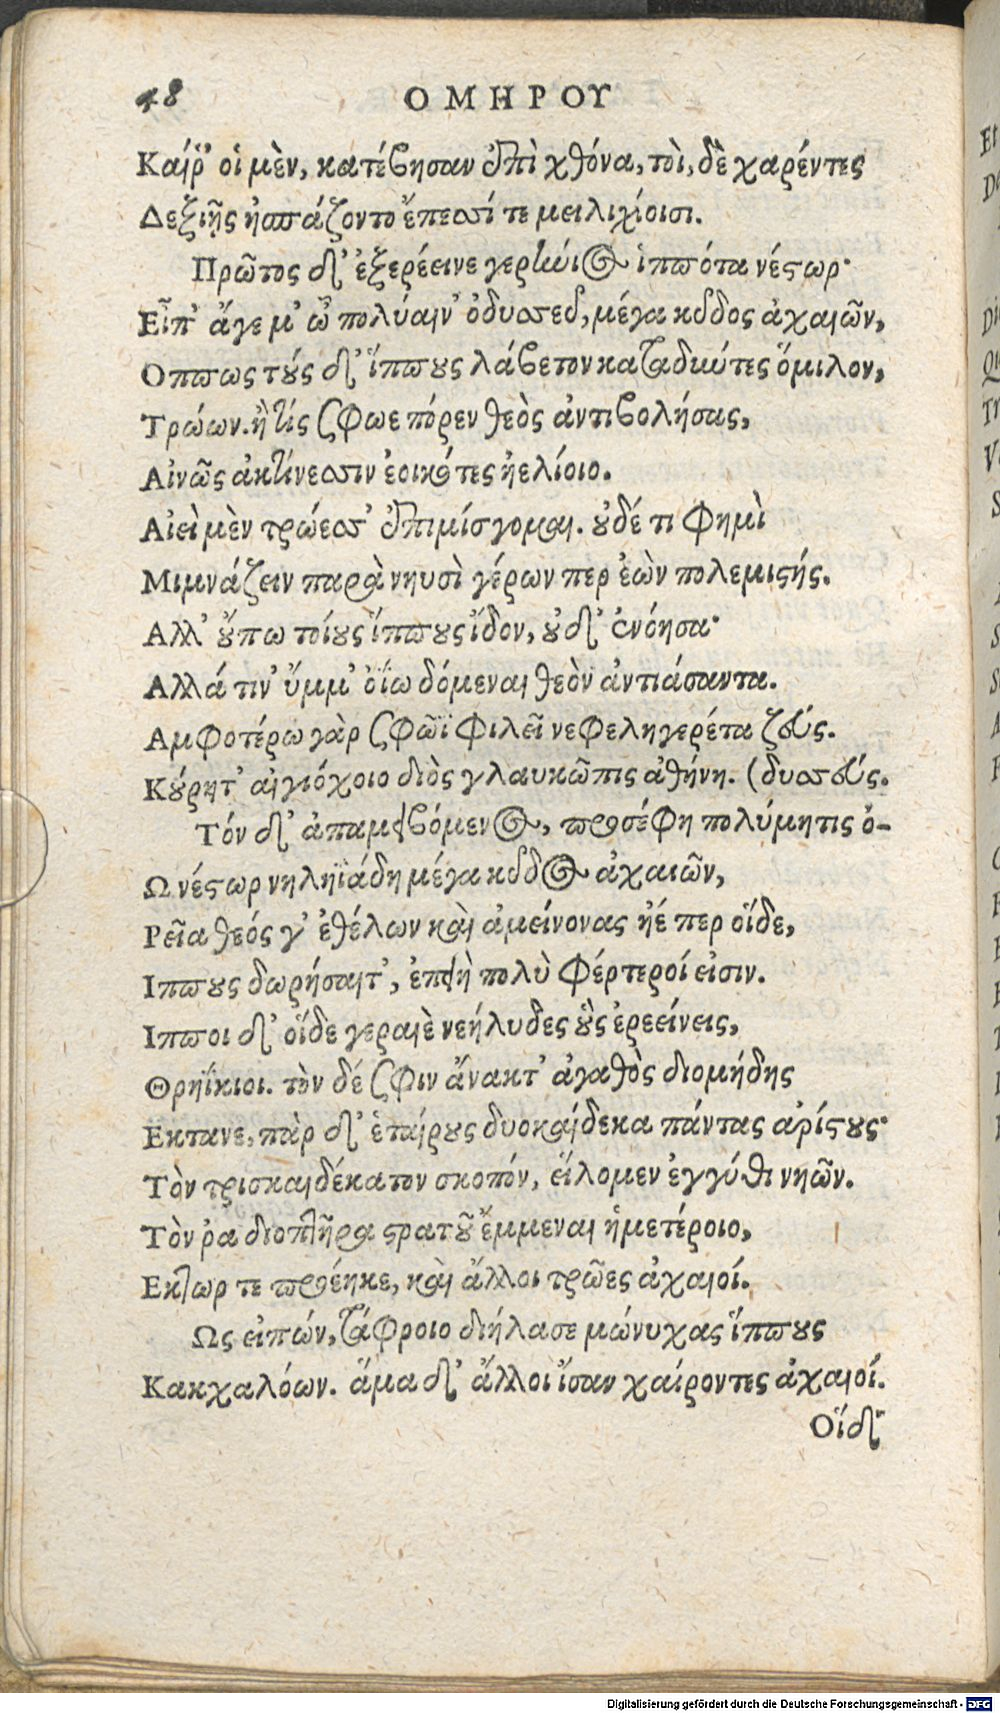 48
ΟΜΗΡΟΥ
Καί ῥ' οἱ μὲν, κατέβησαν ἐπὶ χθόνα, τοὶ, δὲ χαρέντες
Δεξιῇς ἠσπάζοντο ἔπεσσί τε μειλιχίοισι.
Πρῶτος δ' ἐξερέεινε γερήνιος ἱππότα νέστωρ·
Εἶπ' ἄγε μ' ὦ πολύαιν' ὀδυσεῦ, μέγα κῦδος ἀχαιῶν,
Οππως τούς δ' ἵππους λάβετον καταδιώτες ὅμιλον,
Τρώων. ἢ τίς σφωε πόρεν θεὸς ἀντιβολήσας,
Αἰνῶς ἀκτίνεσσιν ἐοικότες ἠελίοιο.
Αἰεὶ μὲν τρώεσσ' ἐπιμίσγομαι. οὐδέ τι φημὶ
Μιμνάζειν παρὰ νηυσὶ γέρων περ ἐὼν πολεμιστής.
Αλλ' οὔπω τοίους ἵππους ἴδον, οὐδ' ἐνόησα·
Αλλά τιν' ὔμμ' ὀΐω δόμεναι θεὸν ἀντιάσαντα.
Αμφοτέρω γὰρ σφῶϊ φιλεῖ νεφεληγερέτα ζεύς.
Κούρητ' αἰγιόχοιο διὸς γλαυκῶπις ἀθήνη. (δυσσεύς.
Τόν δ' ἀπαμειβόμενος, προσέφη πολύμητις ὀ-
Ω νέστωρ νηληϊάδη μέγα κῦδος ἀχαιῶν,
Ρεῖα θεός γ' ἐθέλων καὶ ἀμείνονας ἠέ περ οἵδε,
Ιππους δωρήσαιτ', ἐπειὴ πολὺ φέρτεροί εἰσιν.
Ιπποι δ' οἵδε γεραιὲ νεήλυδες οὓς ἐρεείνεις,
Θρηΐκιοι. τὸν δέ σφιν ἄνακτ' ἀγαθὸς διομήδης
Εκτανε, πὰρ δ' ἑταίρους δυοκαίδεκα πάντας ἀρίστους·
Τὸν τρισκαιδέκατον σκοπόν, εἵλομεν ἐγγύθι νηῶν.
Τὸν ῥα διοπτῆρα στρατοῦ ἔμμεναι ἡμετέροιο,
Εκτωρ τε προέηκε, καὶ ἄλλοι τρῶες ἀχαιοί.
Ως εἰπών, τάφροιο διήλασε μώνυχας ἵππους
Κακχαλόων. ἅμα δ' ἄλλοι ἴσαν χαίροντες ἀχαιοί.
Οἵ δ'
Digitalisierung gefördert durch die Deutsche Forschungsgemeinschaft - DFG